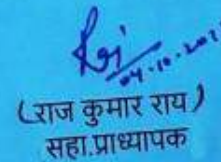 Raj
(राज कुमार राय)
सहा.प्राध्यापक